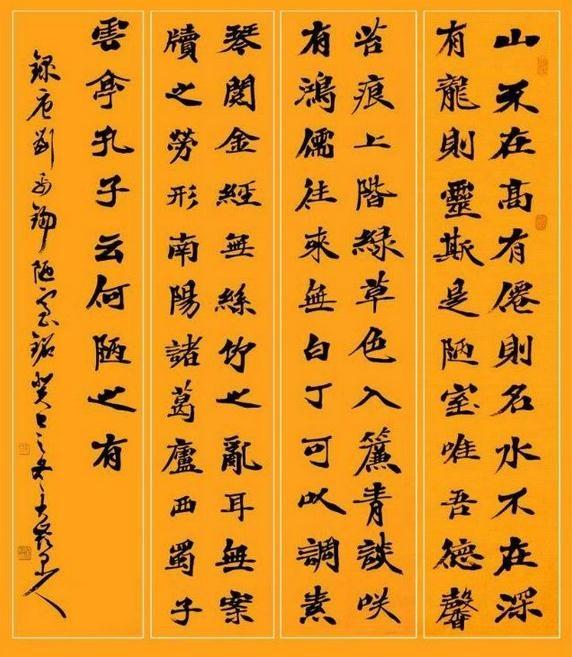 山不在高有僊則名水不在深
有龍則靈斯是陋室唯吾德馨
苔痕上階綠草色入簾青談咲
有鴻儒往來無白丁可以調素
琴閱金經無絲竹也亂耳無案
牘之勞形南陽諸葛廬西蜀子
雲亭孔子云何陋也有
錄唐劉禹錫陋室銘癸巳之冬